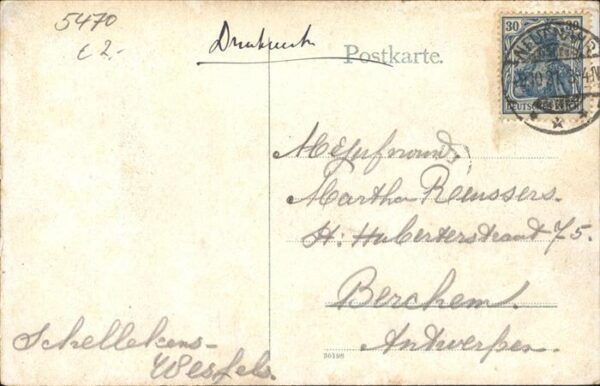 5470
€ 2,-
Drucksache
Postkarte.
30 30
DEUTSCHES REICH
Mejufvrouw.
Martha Reussers.
H: Hubertestraat 75.
Berchem.
Antwerpen
Schellekens-
Wessels.